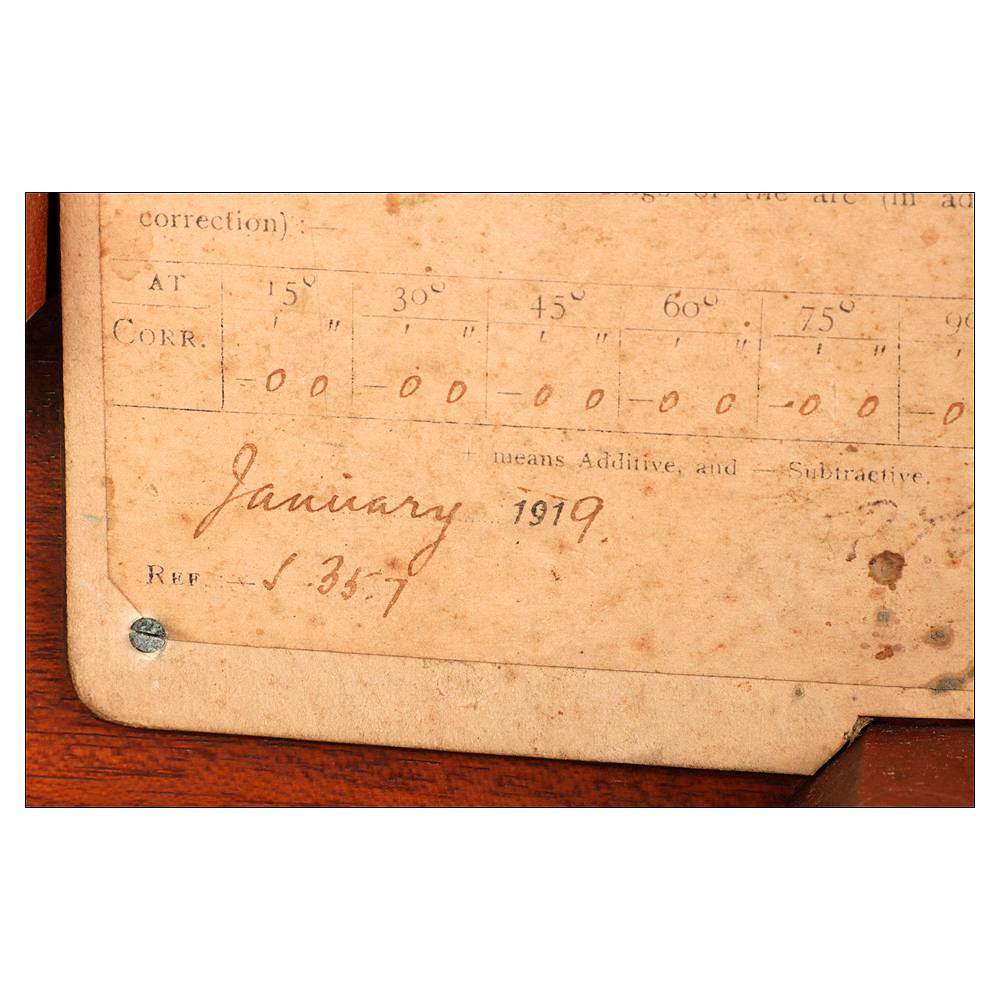 of the arc (in ad
correction) :—
AT 15° 30° 45° 60° 75° 90
CORR. ' " ' " ' " ' " ' " '
–0 0 –0 0 –0 0 –0 0 –0 0 –0
+ means Additive, and — Subtractive.
January 1919.
REF :— S 357